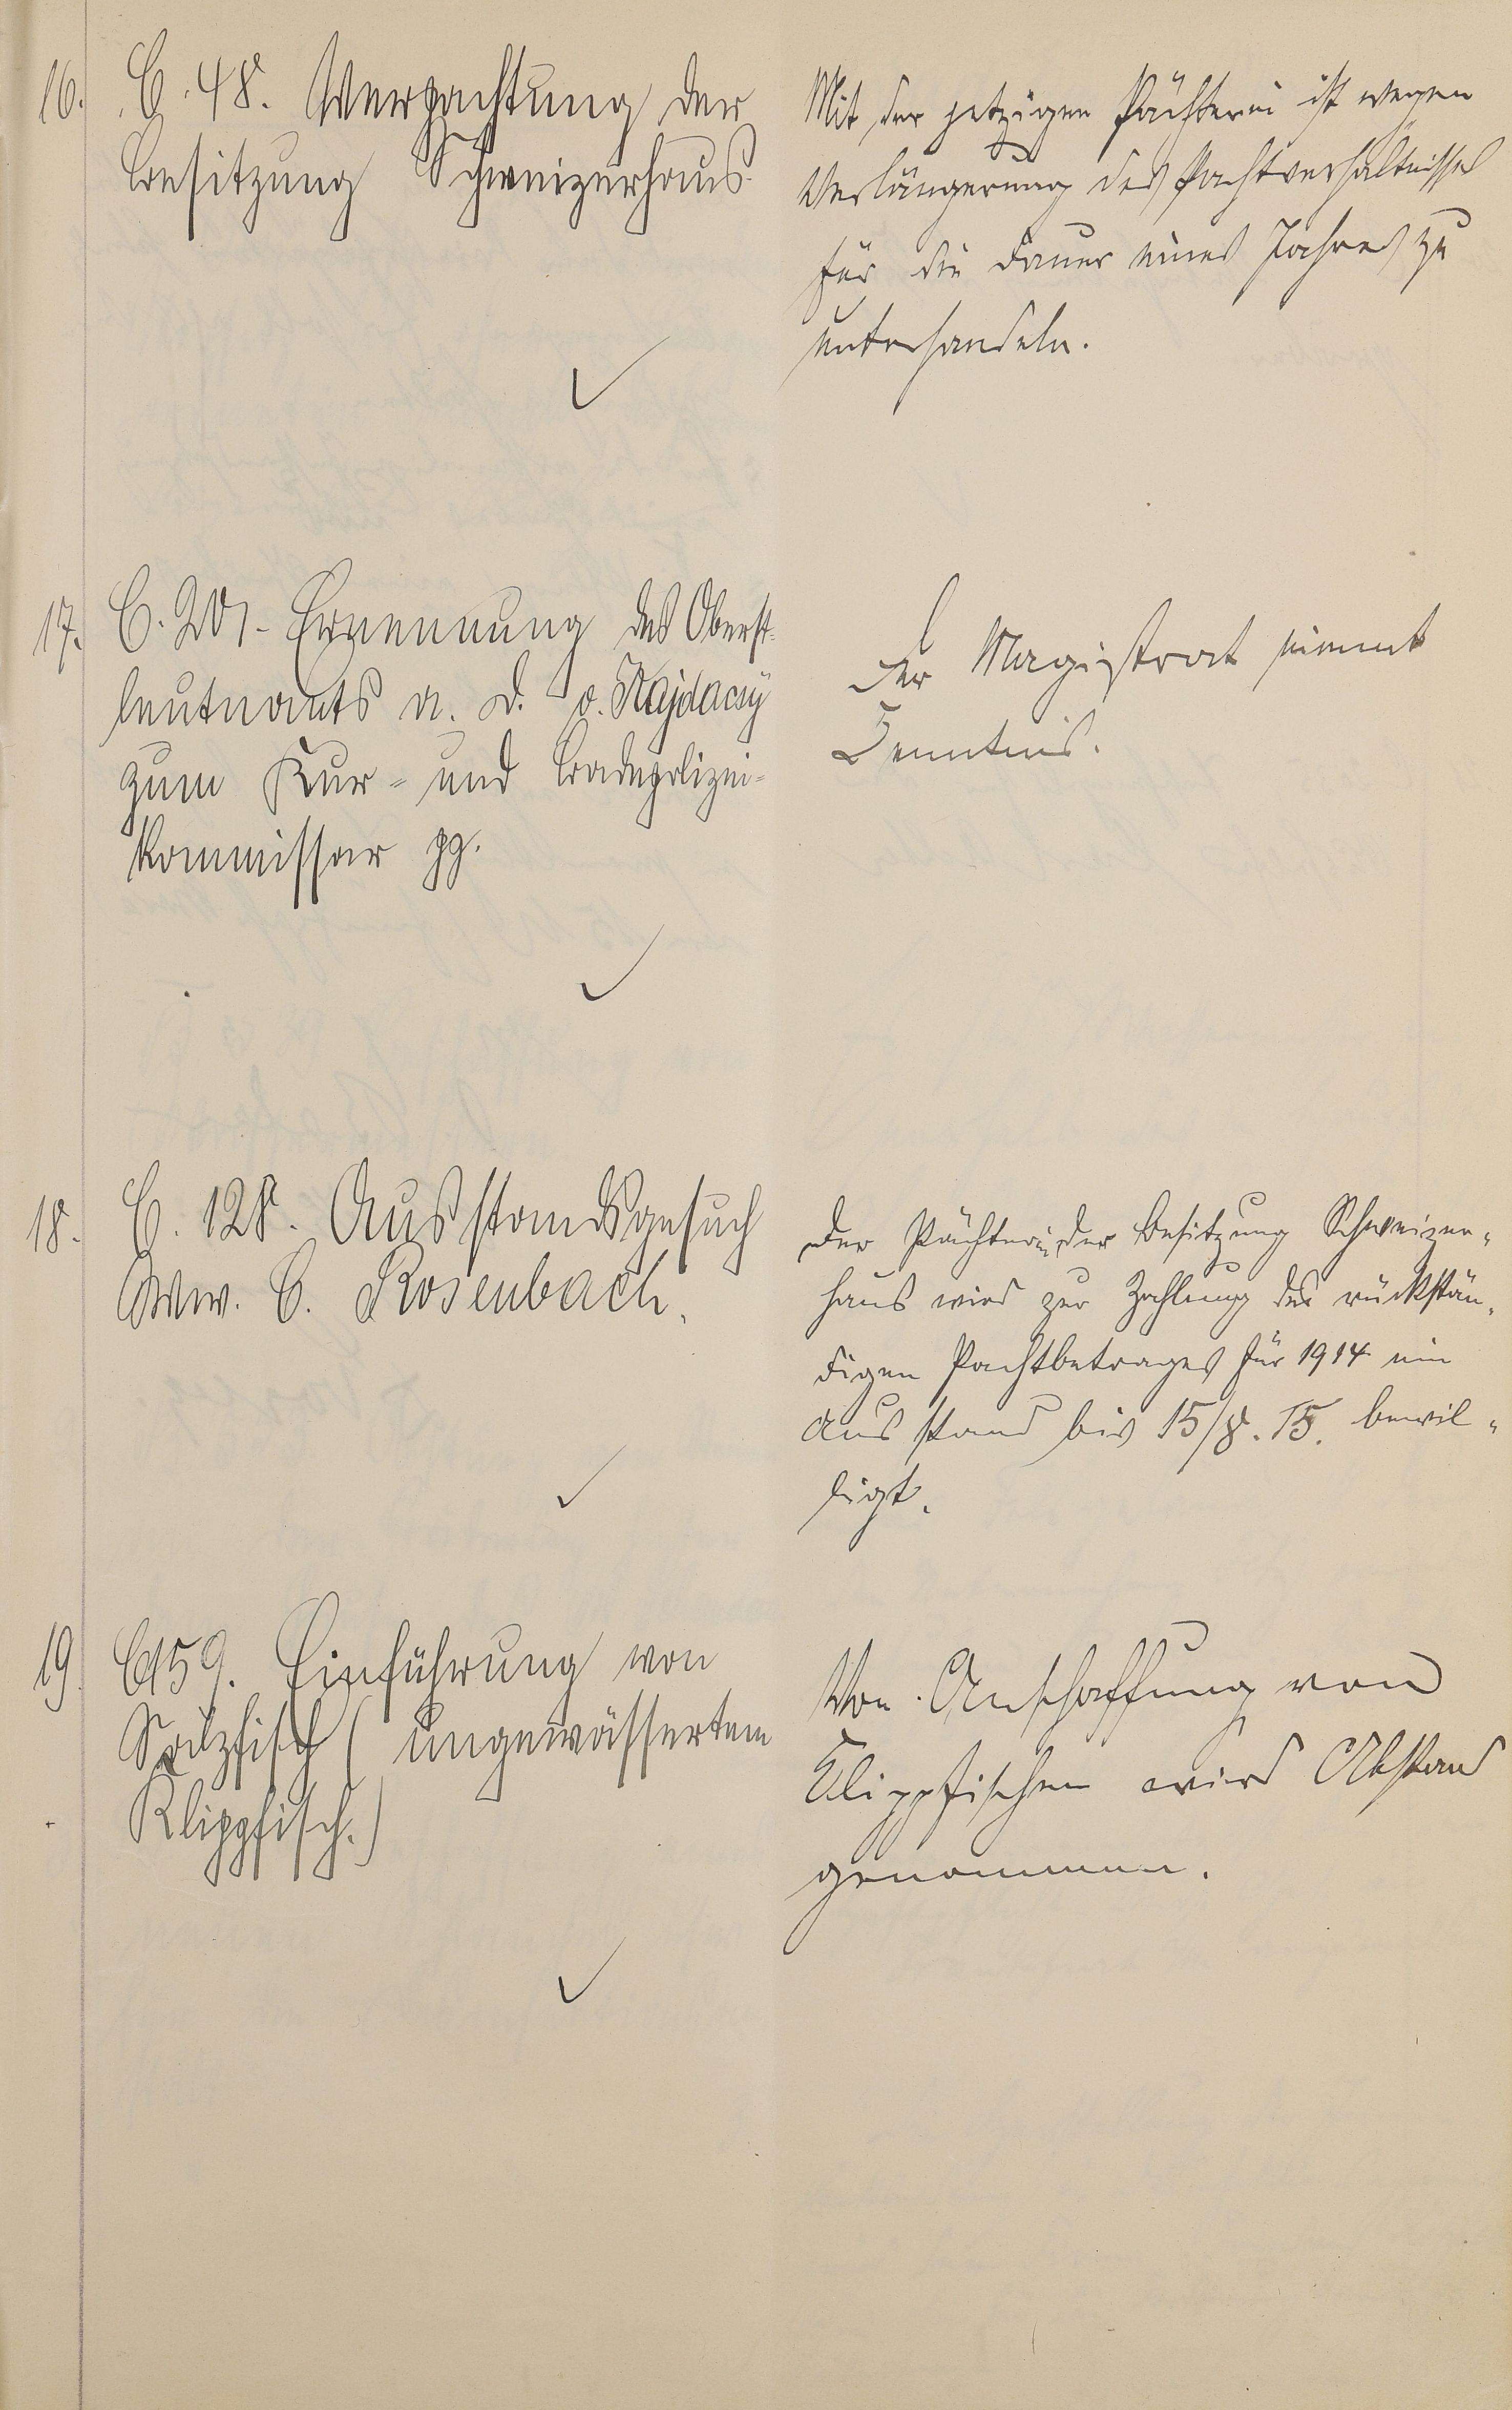 16. C. 48. Verpachtung der
Besitzung Schweizerhaus.
Mit der jetzigen Pächterin ist wegen
Verlängerung des Pachtverhältnisses
für die Dauer eines Jahres zu
unterhandeln.
17. C. 201. Ernennung des Oberst-
leutnants a. D. v. Kajdacsy
zum Kur- und Badepolizei-
kommissar pp.
Der Magistrat nimmt
Kenntnis.
18. C. 128. Ausstandsgesuch
Ww. C. Rosenbach.
Der Pächterin der Besitzung Schweizer-
haus wird zur Zahlung des rückstän-
digen Pachtbetrages für 1914 ein
Ausstand bis 15/8. 15. bewil-
ligt.
19. C 159. Einführung von
Salzfisch (ungewässertem
Klippfisch.)
Von Anschaffung von
Klippfischen wird Abstand
genommen.